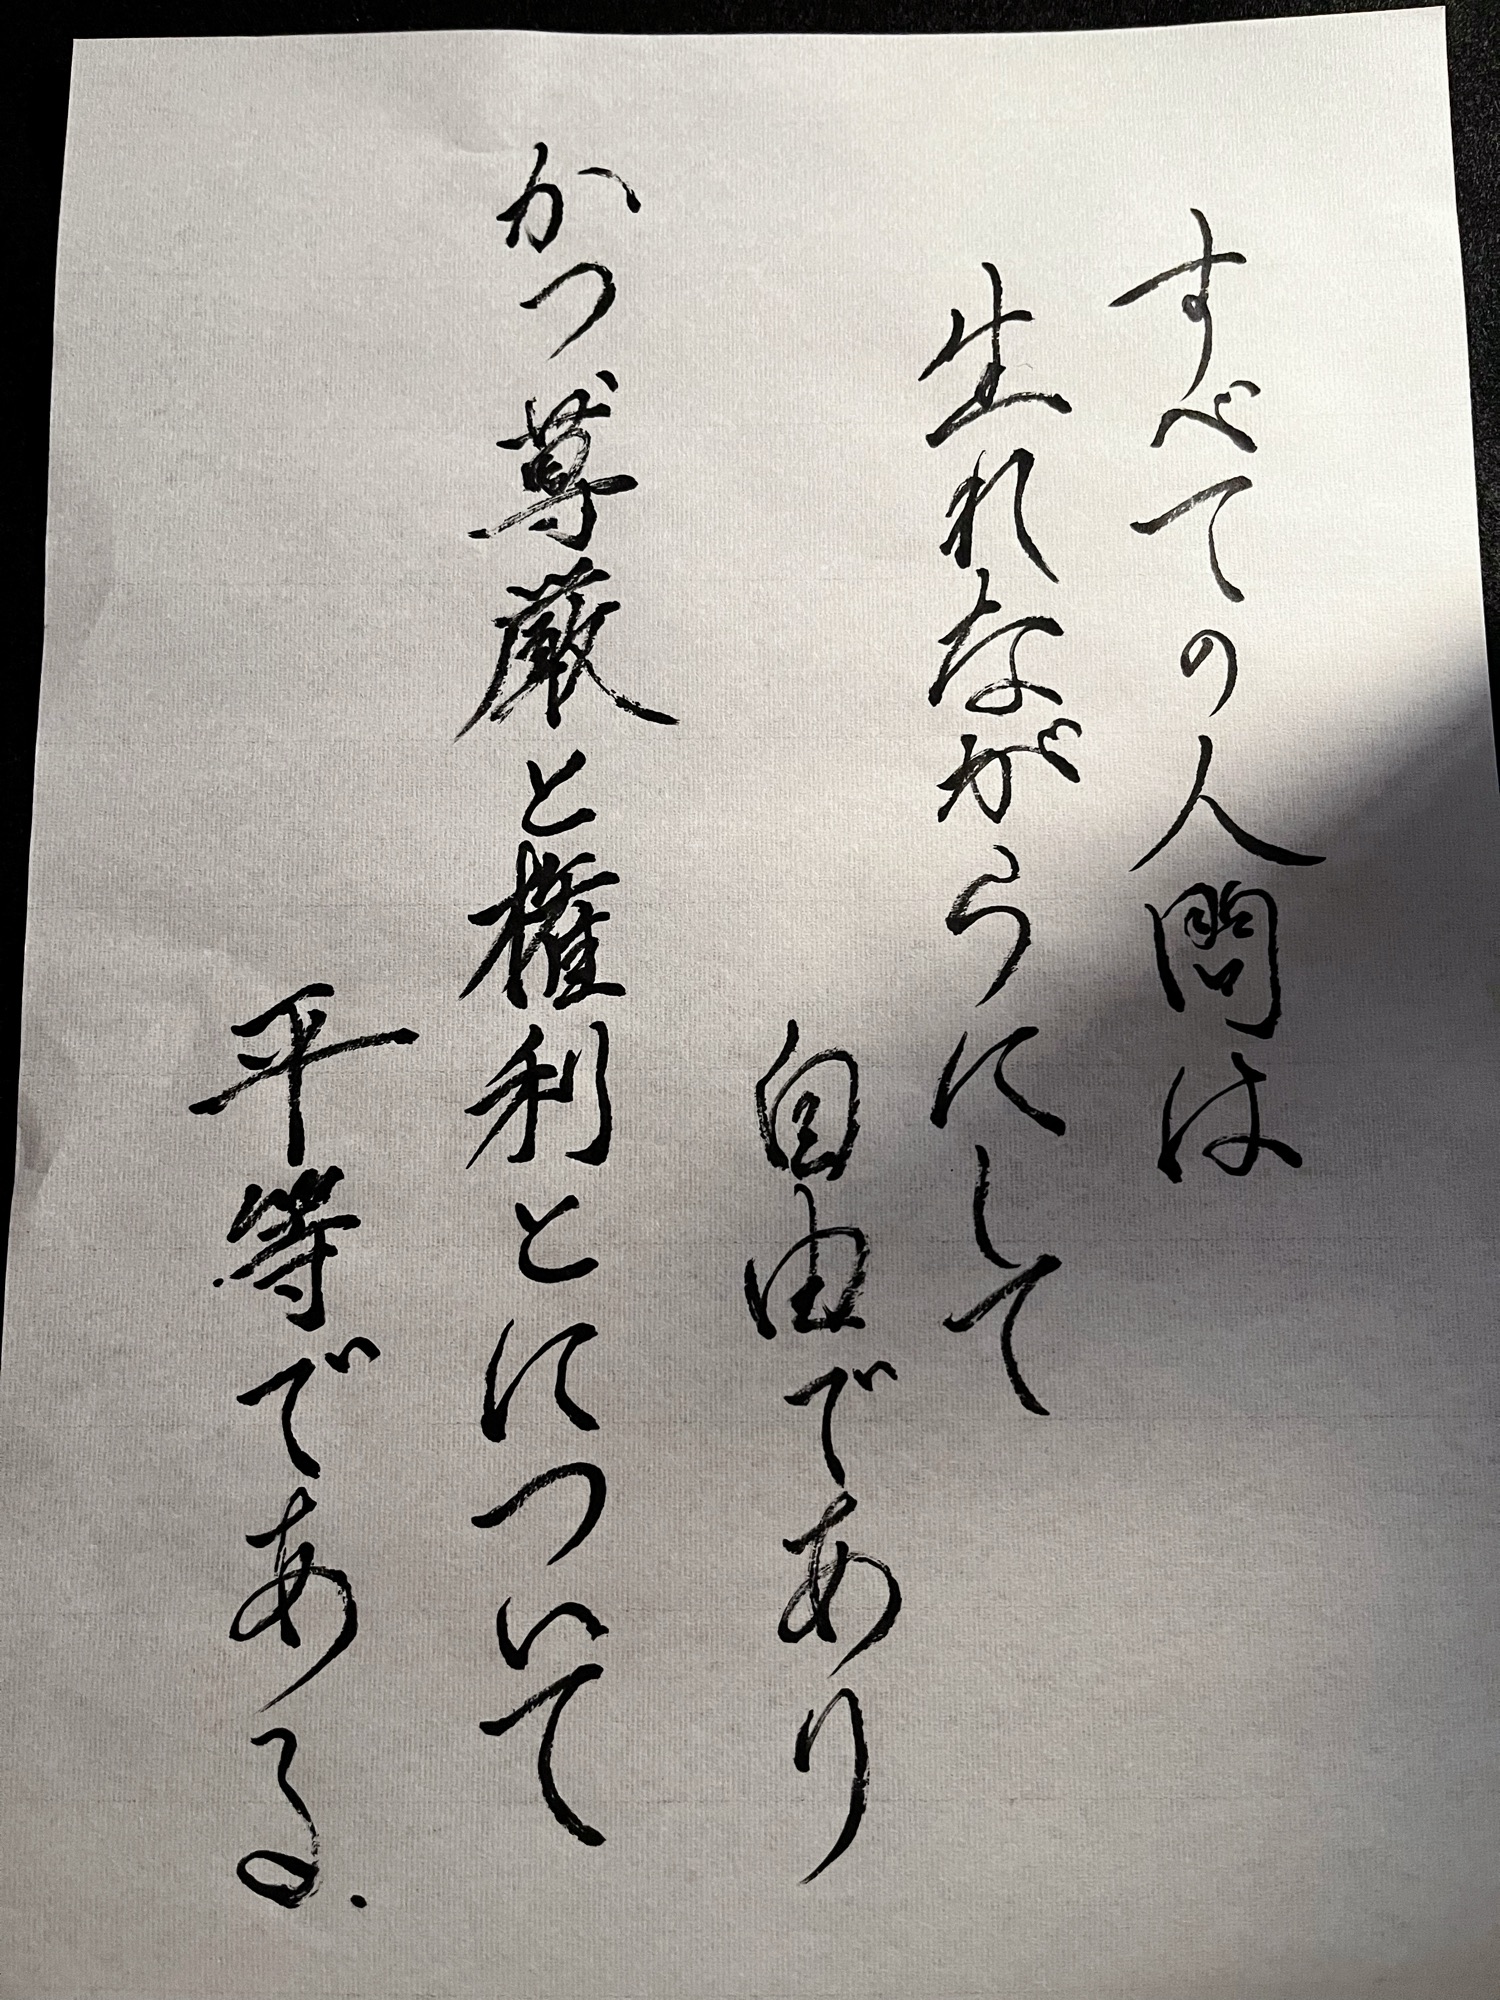 すべての人間は
生れながらにして
自由であり
かつ尊厳と権利とについて
平等である.